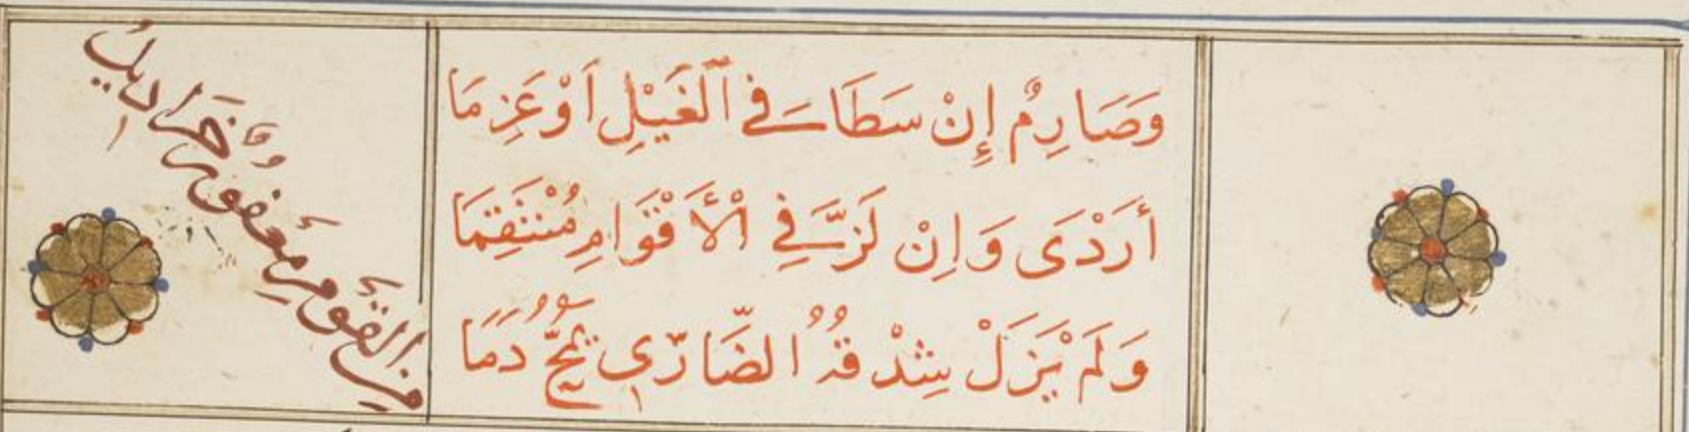 وَصَارِمٌ إِنْ سَطَا سَـ في ٱلغَيْلِ اَوْ عَزِمَا
أَرَدْىَ وَاِنْ لَزَّ سَـ فِي الْأَقْوَامِ مُنْتَقِمَا
وَلَمْ يَزَلْ شِدْقُهُ الضَّارِّي يَمُجُّ دَمًا
مِنَ القَوْمِ مَعْفُورٌ خَرَادِيلُ